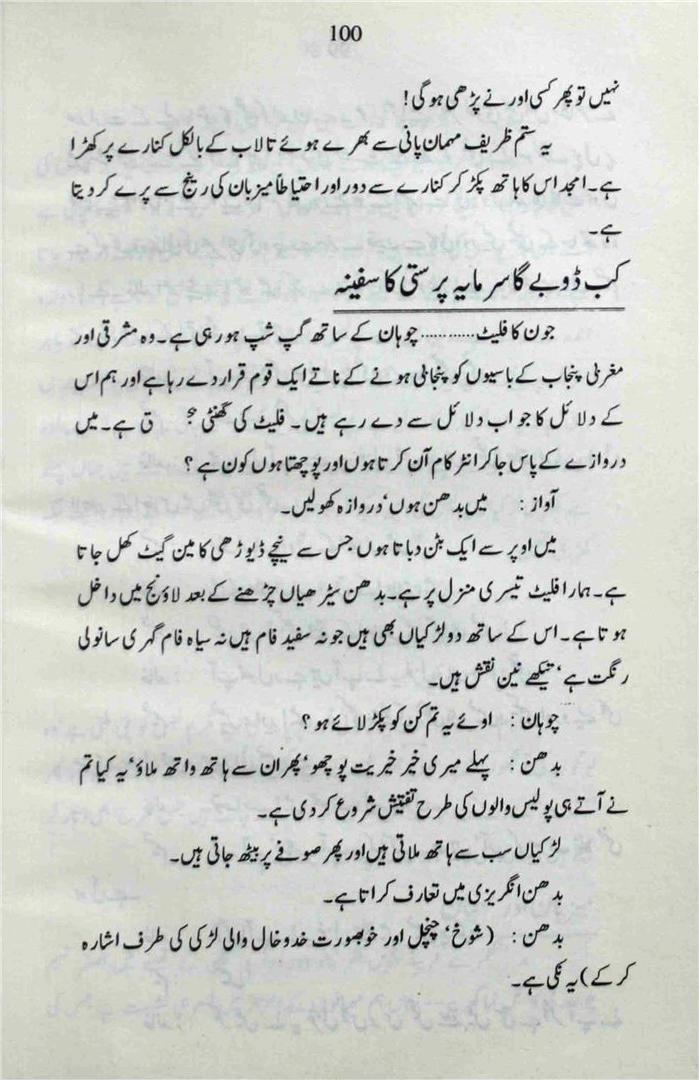 100
نہیں تو پھر کسی اور نے پڑھی ہو گی!
یہ ستم ظریف مہمان پانی سے بھرے ہوئے تالاب کے بالکل کنارے پر کھڑا
ہے۔ امجد اس کا ہاتھ پکڑ کر کنارے سے دور اور احتیاطاً میزبان کی رینج سے پرے کر دیتا
ہے۔
کب ڈوبے گا سرمایہ پرستی کا سفینہ
جون کا فلیٹ........... چوہان کے ساتھ گپ شپ ہو رہی ہے۔ وہ مشرقی اور
مغربی پنجاب کے باسیوں کو پنجابی ہونے کے ناتے ایک قوم قرار دے رہا ہے اور ہم اس
کے دلائل کا جواب دلائل سے دے رہے ہیں۔ فلیٹ کی گھنٹی ہے۔ میں
دروازے کے پاس جا کر انٹرکام آن کرتا ہوں اور پوچھتا ہوں کون ہے؟
آواز: میں بدھن ہوں‘ دروازہ کھولیں۔
میں اوپر سے ایک بٹن دباتا ہوں جس سے نیچے ڈیوڑھی کا مین گیٹ کھل جاتا
ہے۔ ہمارا فلیٹ تیسری منزل پر ہے۔ بدھن سیڑھیاں چڑھنے کے بعد لاؤنج میں داخل
ہوتا ہے۔ اس کے ساتھ دو لڑکیاں بھی ہیں جو نہ سفید فام ہیں نہ سیاہ فام گہری سانولی
رنگت ہے‘ تیکھے نین نقش ہیں۔
چوہان: اوئے یہ تم کن کو پکڑ لائے ہو؟
بدھن: پہلے میری خیر خیریت پوچھو‘ پھر ان سے ہاتھ واتھ ملاؤ‘ یہ کیا تم
نے آتے ہی پولیس والوں کی طرح تفتیش شروع کر دی ہے۔
لڑکیاں سب سے ہاتھ ملاتی ہیں اور پھر صوفے پر بیٹھ جاتی ہیں۔
بدھن انگریزی میں تعارف کراتا ہے۔
بدھن: (شوخ‘ چنچل اور خوبصورت خدوخال والی لڑکی کی طرف اشارہ
کر کے) یہ نکی ہے۔